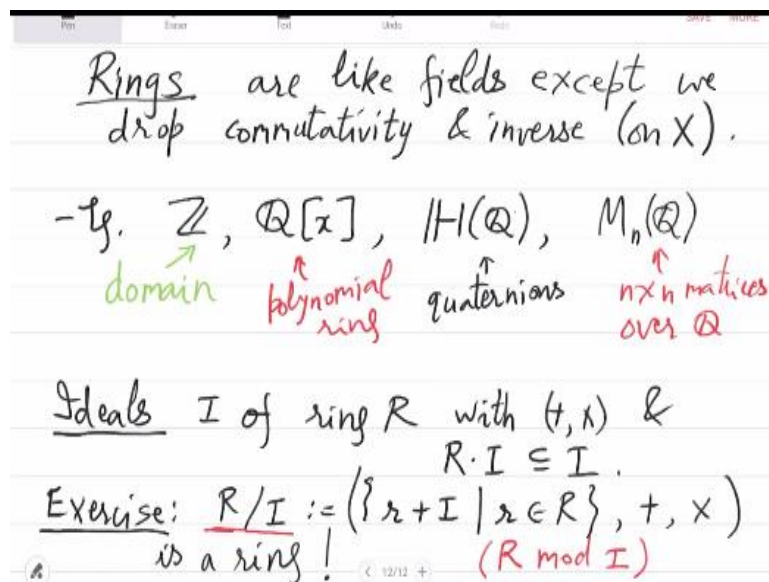 Pen Eraser Text Undo Redo SAVE MORE
Rings are like fields except we
drop commutativity & inverse (on X).
-Eg. ℤ, ℚ[x], ℍ(ℚ), Mₙ(ℚ)
domain polynomial ring quaternions n×n matrices over ℚ
Ideals I of ring R with (+,×) &
R·I ⊆ I.
Exercise: R/I := ({r+I | r∈R}, +, ×)
is a ring! (R mod I)
12/12